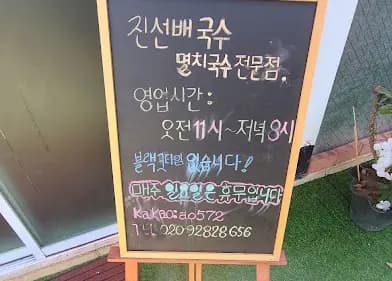 진선배 국수
멸치국수 전문점.
영업시간 :
오전 11시~저녁 8시
블랙핏타임 있습니다!
매주 일요일은 휴무입니다
Kakao: ao572
TEL 020 92828656